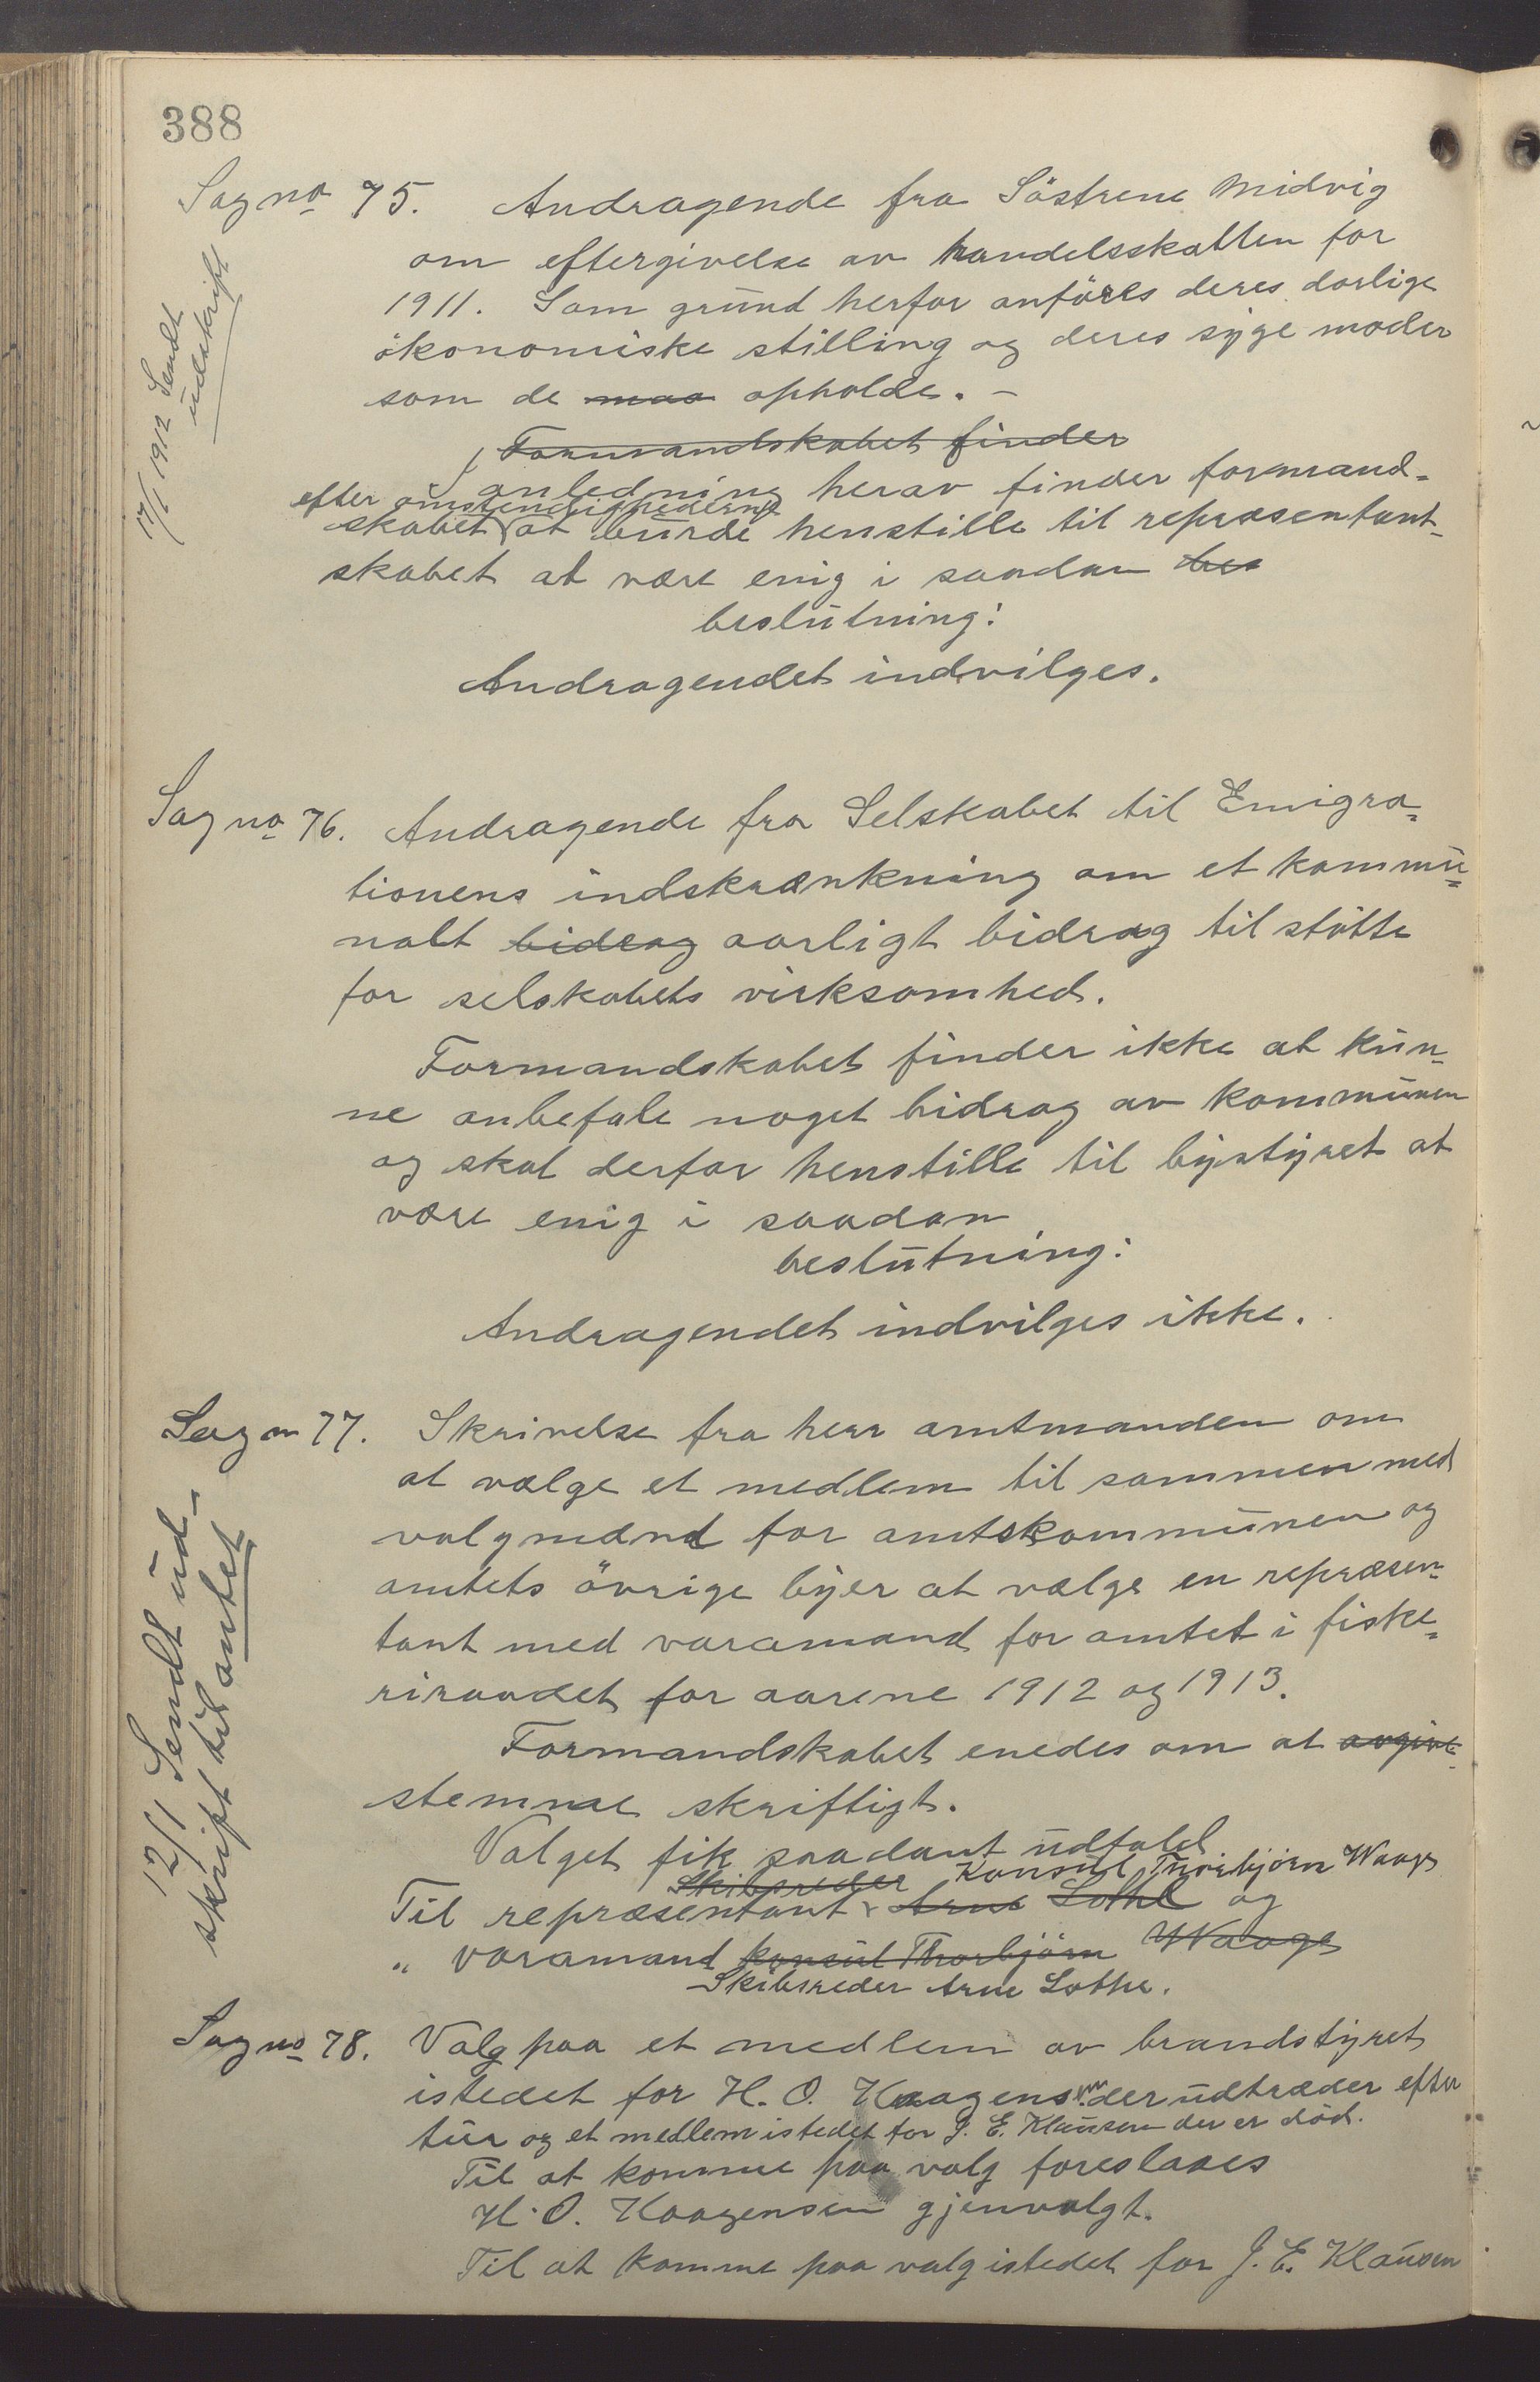 388
Sag no 75. Andragende fra Söstrene Midvig
om eftergivelse av handelsskatten for
1911. Som grund herfor anföres deres darlige
ökonomiske stilling og deres syge moder
som de maa opholde. –
17/1 1912 Sendt
udskrift
Formandskabet finder
I anledning herav finder formand-
efter omstendighederne
skabet at burde henstille til repræsentant-
skabet at være enig i saadan bes
beslutning:
Andragendet indvilges.
Sag no 76. Andragende fra Selskabet til Emigra-
tionens indskrænkning om et kommu-
nalt bidrag aarligt bidrag til stötte
for selskabets virksomhed.
Formandskabet finder ikke at kun-
ne anbefale noget bidrag av kommunen
og skal derfor henstille til bystyret at
være enig i saadan
beslutning:
Andragendet indvilges ikke.
Sag n 77. Skrivelse fra herr amtmanden om
at vælge et medlem til sammen med
valgmænd for amtskommunen og
amtets övrige byer at vælge en repræsen-
tant med varamand for amtet i fiske-
riraadet for aarene 1912 og 1913.
12/1 Sendt ud-
skrift til amtet
Formandskabet enedes om at avgive
stemme skriftligt.
Valget fik saadant udfald
Skibsreder Konsul Thorbjörn Waage
Til repræsentant Arne Lothe og
" varamand konsul Thorbjörn Waage
Skibsreder Arne Lothe.
Sag no 78. Valg paa et medlem av brandstyret
istedet for H. O. Haagensen der udtræder efter
tur og et medlem istedet for J. E. Klausen der er död.
Til at komme paa valg foreslaaes
H. O. Haagensen gjenvalgt.
Til at komme paa valg istedet for J. E. Klausen